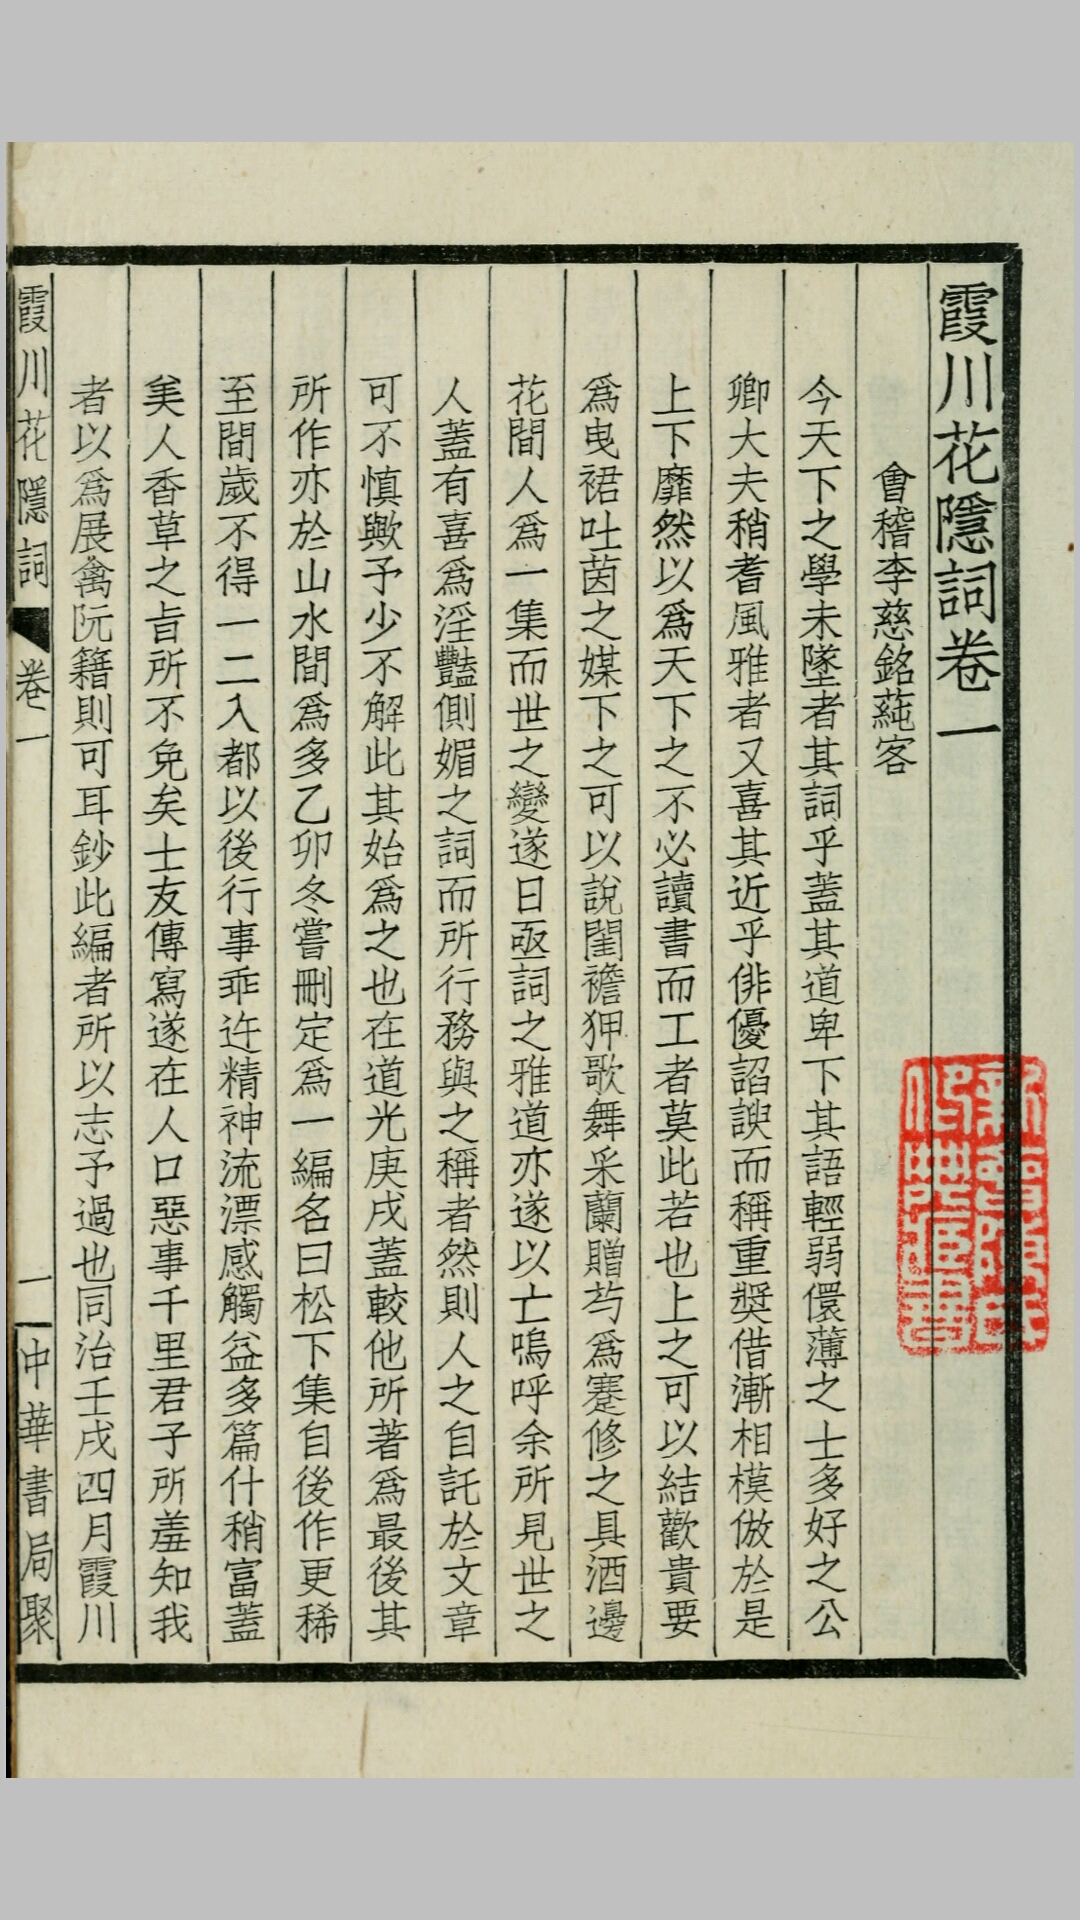 霞川花隱詞卷一
會稽李慈銘蒓客
今天下之學未墜者其詞乎蓋其道卑下其語輕弱儇薄之士多好之公
卿大夫稍耆風雅者又喜其近乎俳優諂諛而稱重奬借漸相模倣於是
上下靡然以爲天下之不必讀書而工者莫此若也上之可以結歡貴要
爲曳裾吐茵之媒下之可以說閨襜狎歌舞采蘭贈芍爲蹇修之具酒邊
花間人爲一集而世之變遂日亟詞之雅道亦遂以亡嗚呼余所見世之
人蓋有喜爲淫豔側媚之詞而所行務與之稱者然則人之自託於文章
可不慎歟予少不解此其始爲之也在道光庚戌蓋較他所著爲最後其
所作亦於山水間爲多乙卯冬嘗刪定爲一編名曰松下集自後作更稀
至間歲不得一二入都以後行事乖迕精神流漂感觸益多篇什稍富蓋
美人香草之旨所不免矣士友傳寫遂在人口惡事千里君子所羞知我
者以爲展禽阮籍則可耳鈔此編者所以志予過也同治壬戌四月霞川
霞川花隱詞 卷一 一 中華書局聚